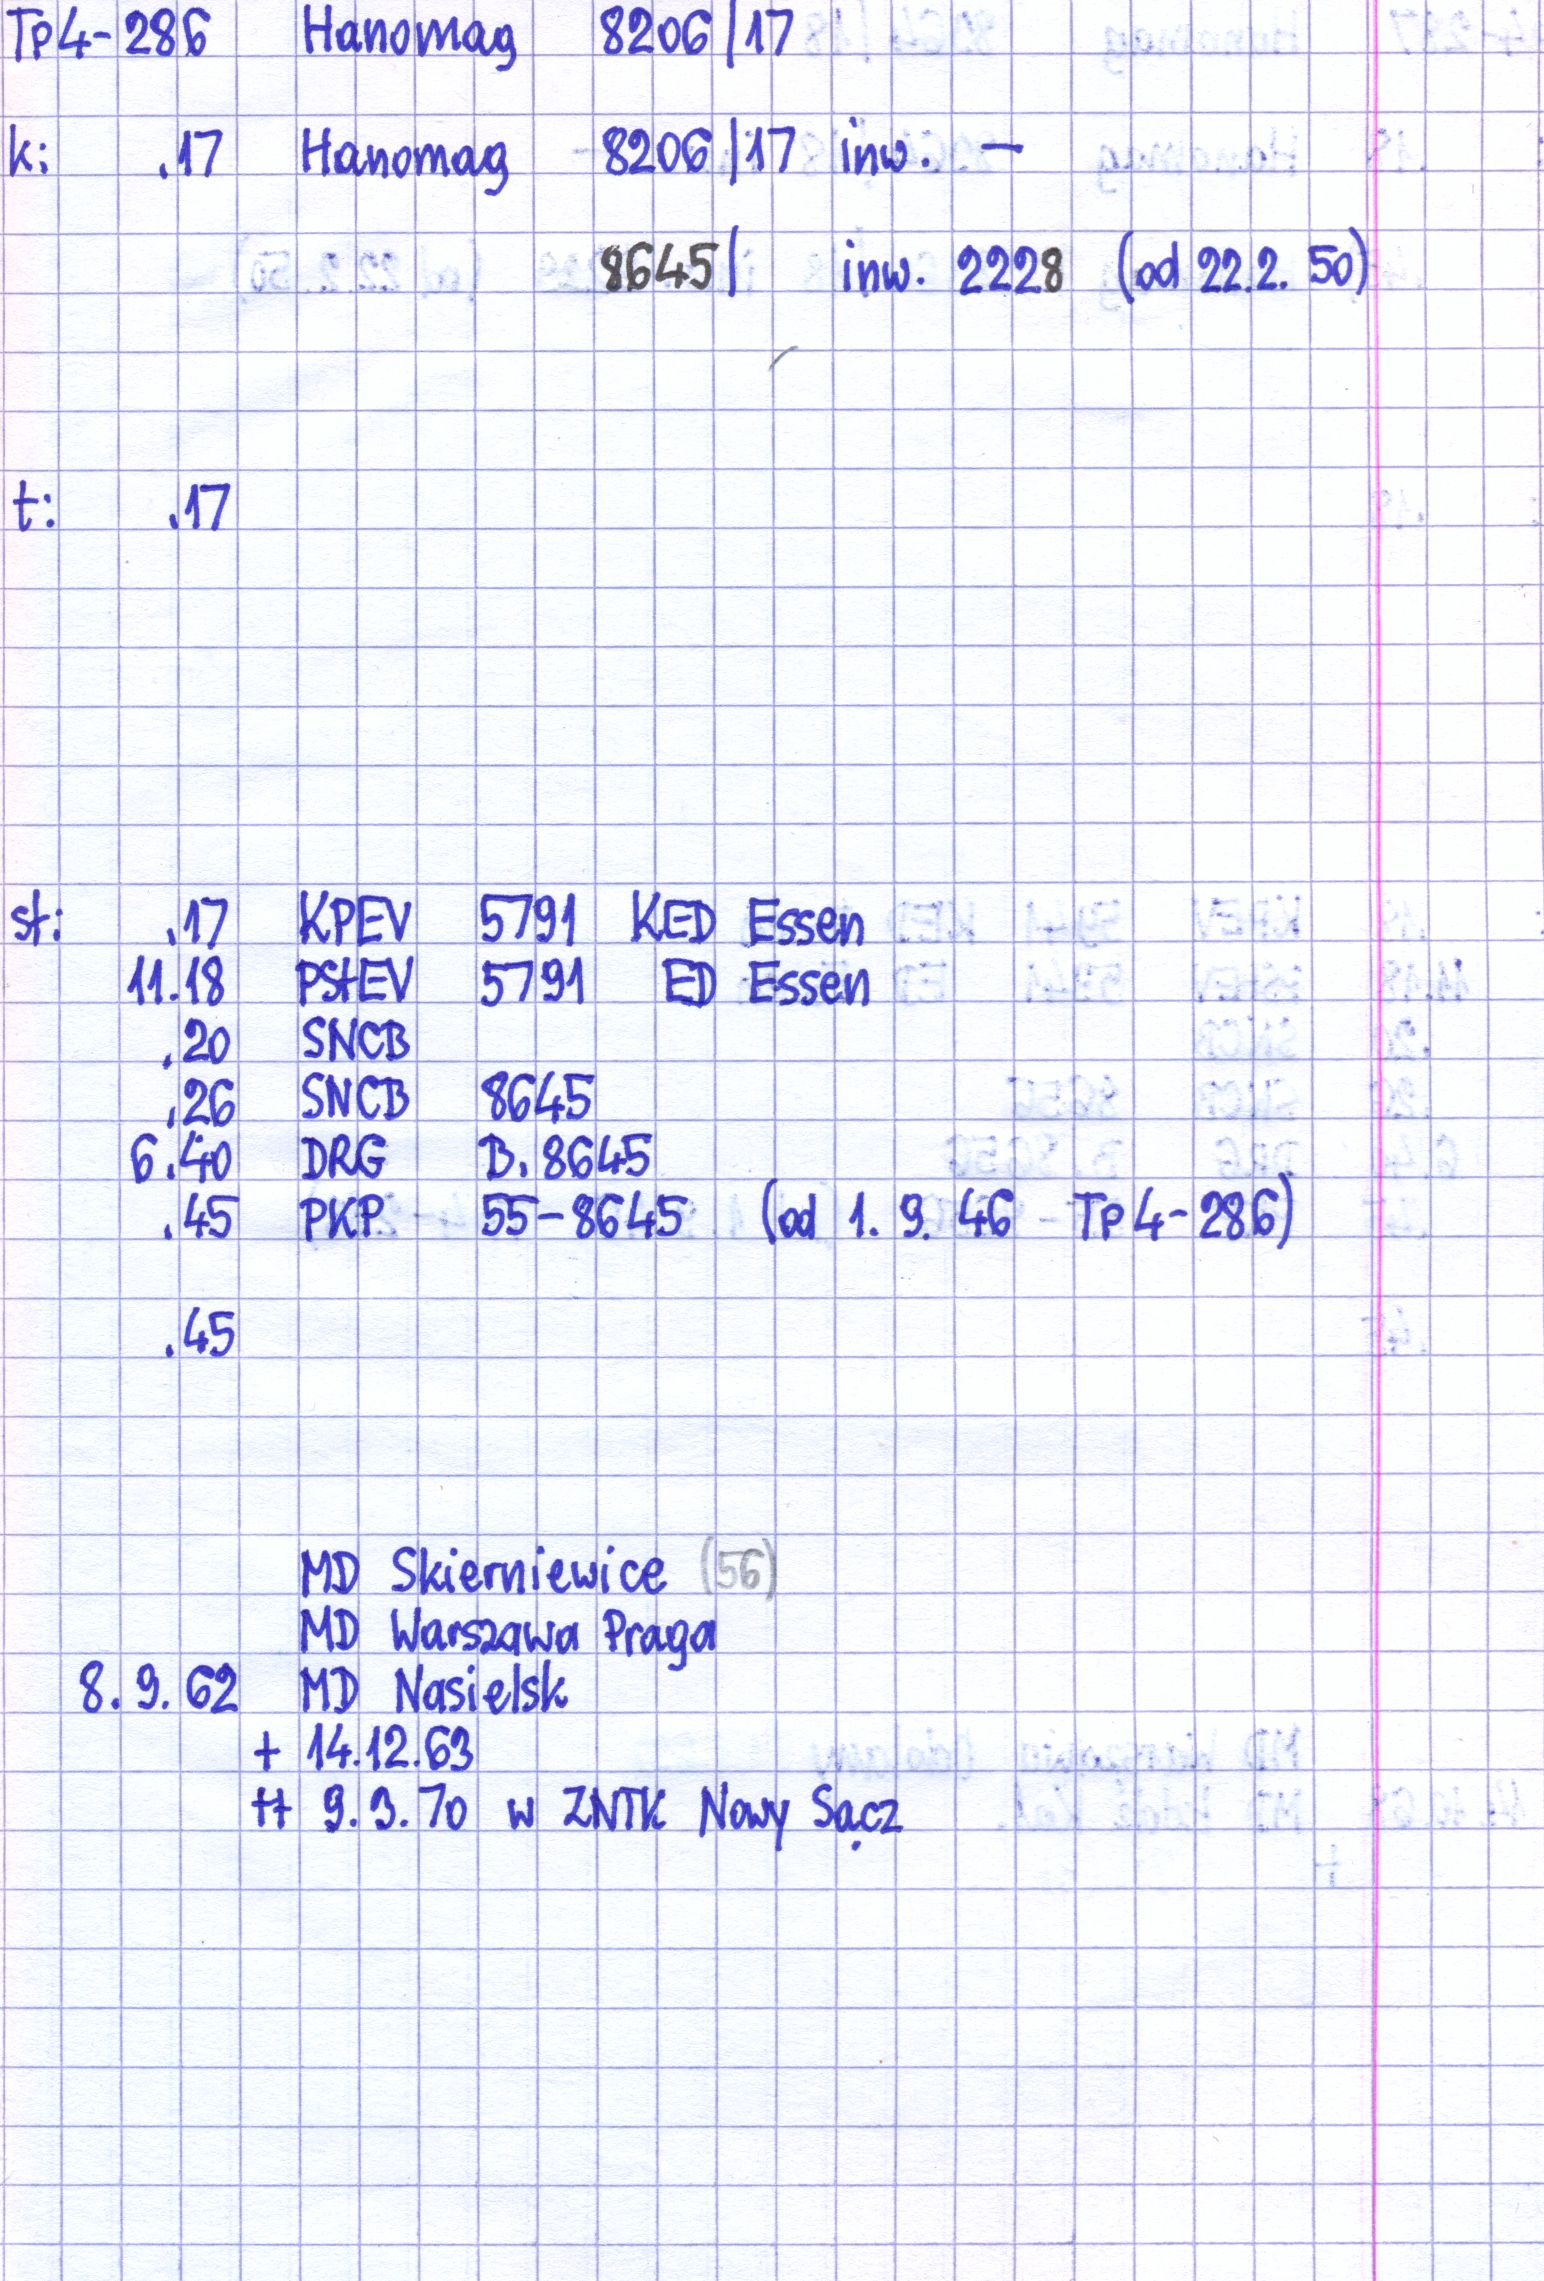 Tp4-286 Hanomag 8206/17
k: .17 Hanomag 8206/17 inw. —
8645/ inw. 2228 (od 22.2.50)
t: .17
st: .17 KPEV 5791 KED Essen
11.18 PStEV 5791 ED Essen
.20 SNCB
.26 SNCB 8645
6.40 DRG B.8645
.45 PKP 55-8645 (od 1.9.46 Tp4-286)
.45
MD Skierniewice (56)
MD Warszawa Praga
8.9.62 MD Nasielsk
+ 14.12.63
++ 9.3.70 w ZNTK Nowy Sącz